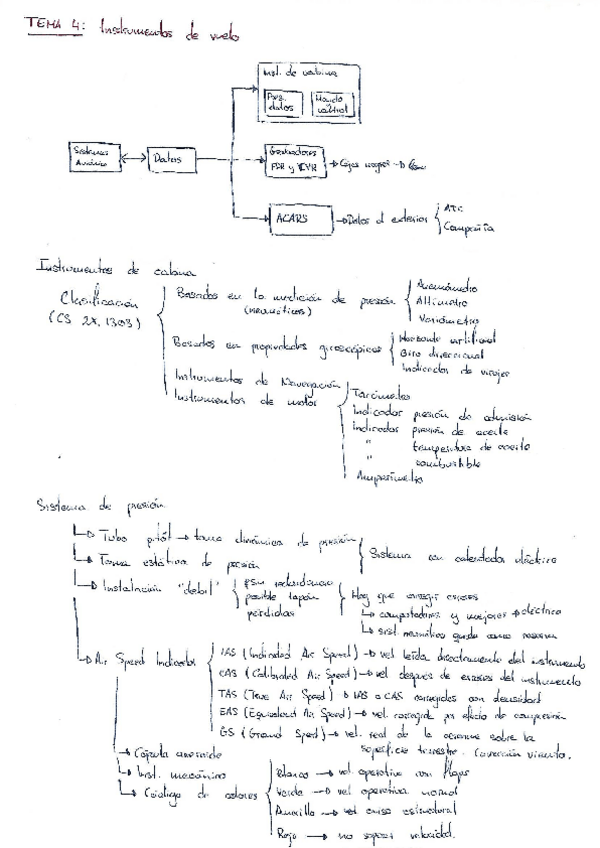 TEMA 4: Instrumentos de vuelo
Inst. de cabina
Pres. datos
Mando control
Sistemas
Datos
Grabadores FDR y CVR
Cajas negras
ACARS
Datos al exterior
ATC
Compañía
Instrumentos de cabina
Clasificación
(CS 2X.1303)
Basados en la medición de presión
(neumáticos)
Anemómetro
Altímetro
Variómetro
Basados en propiedades giroscópicas
Horizonte artificial
Giro direccional
Indicador de virajes
Instrumentos de Navegación
Instrumentos de motor
Tacómetro
Indicador presión de admisión
Indicador presión de aceite
" temperatura de aceite
" combustible
Amperímetro
Sistema de presión
Tubo pitot → toma dinámica de presión
Toma estática de presión
Sistema con calentador eléctrico
Instalación "débil"
sin redundancia
posible tapón
pérdidas
Hay que corregir errores
computadoras y mejores → eléctrico
sist. neumático queda como reserva
Air Speed Indicator
IAS (Indicated Air Speed) → vel leída directamente del instrumento
CAS (Calibrated Air Speed) → vel despues de errores del instrumento
TAS (True Air Speed) → IAS o CAS corregidas con densidad
EAS (Equivalent Air Speed) → vel. corregida por efecto de compresión
GS (Ground Speed) → vel. real de la aeronave sobre la
superficie terrestre. Corrección viento.
Cápsula aneroide
Inst. mecánico
Código de colores
Blanco → vel. operativa con flaps
Verde → vel operativa normal
Amarillo → vel estructural
Rojo → no superar velocidad.